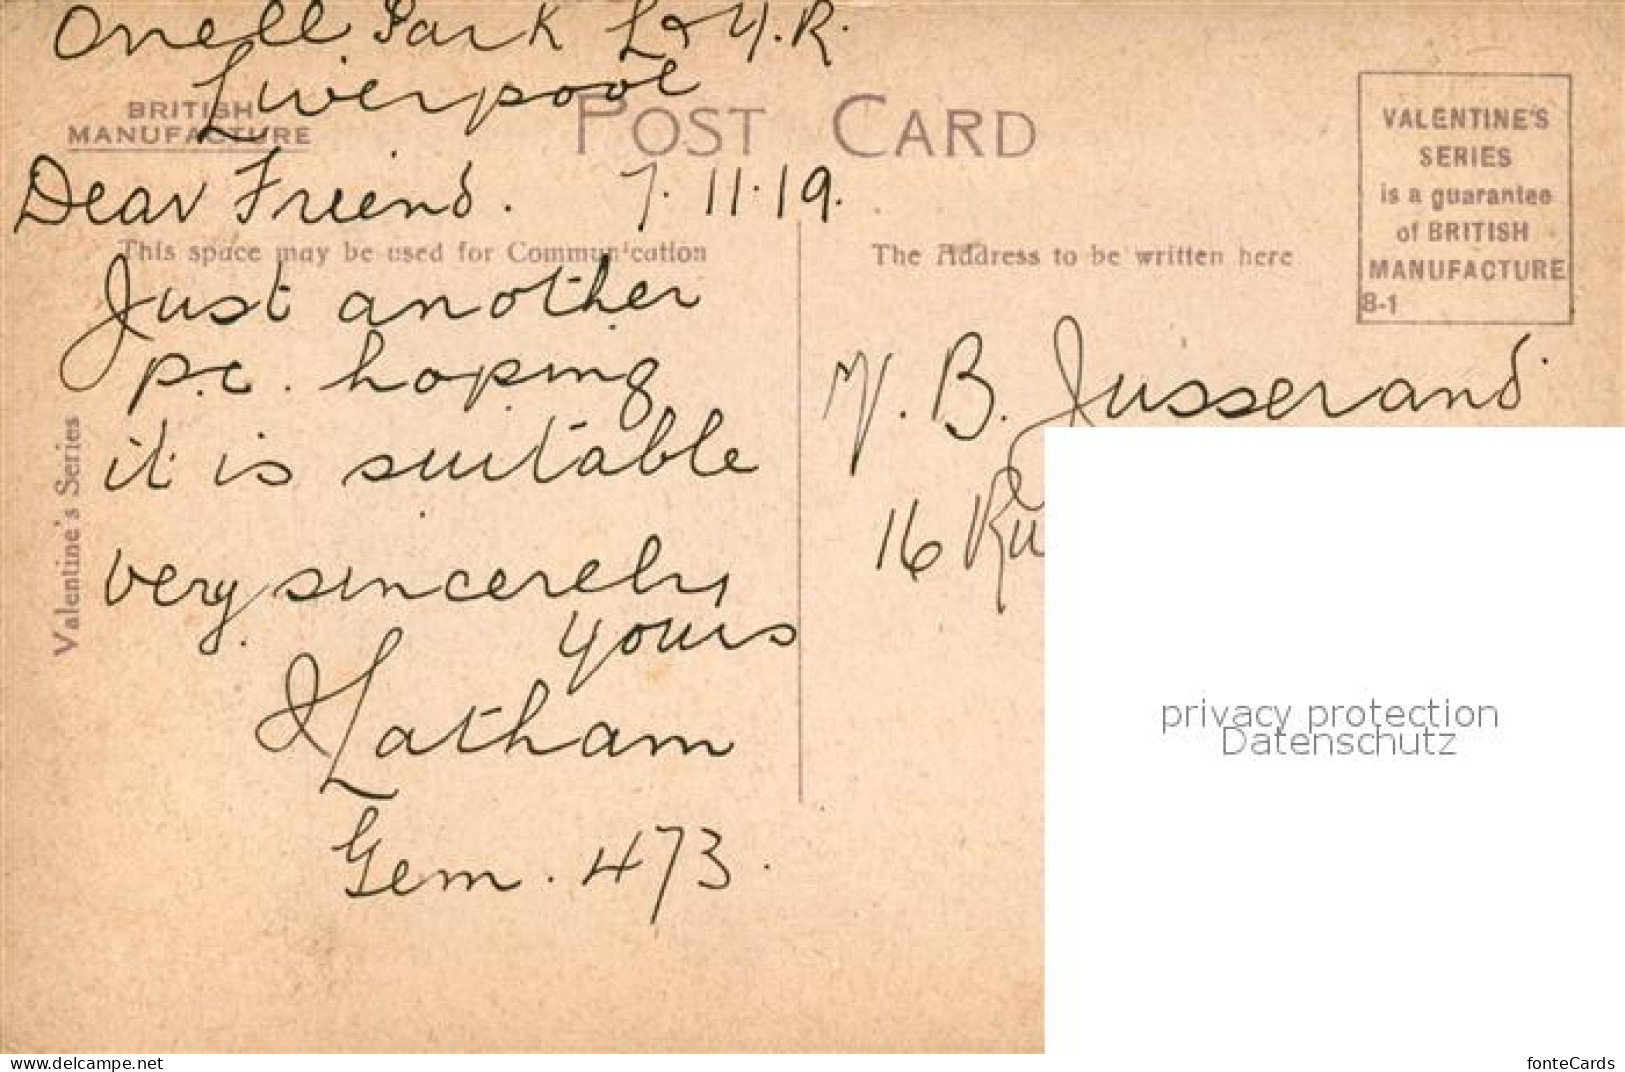 Orrell Park L & Y.R.
Liverpool
BRITISH
MANUFACTURE
POST CARD
VALENTINE'S
SERIES
is a guarantee
of BRITISH
MANUFACTURE
8-1
Dear Friend. 7.11.19.
This space may be used for Communication
The Address to be written here
Just another
p.c. hoping
it is suitable
very sincerely
yours
Latham
Gem. 473.
Valentine's Series
B. Jusserand
16 Ru
privacy protection
Datenschutz
fonteCards
https://www.delcampe.net